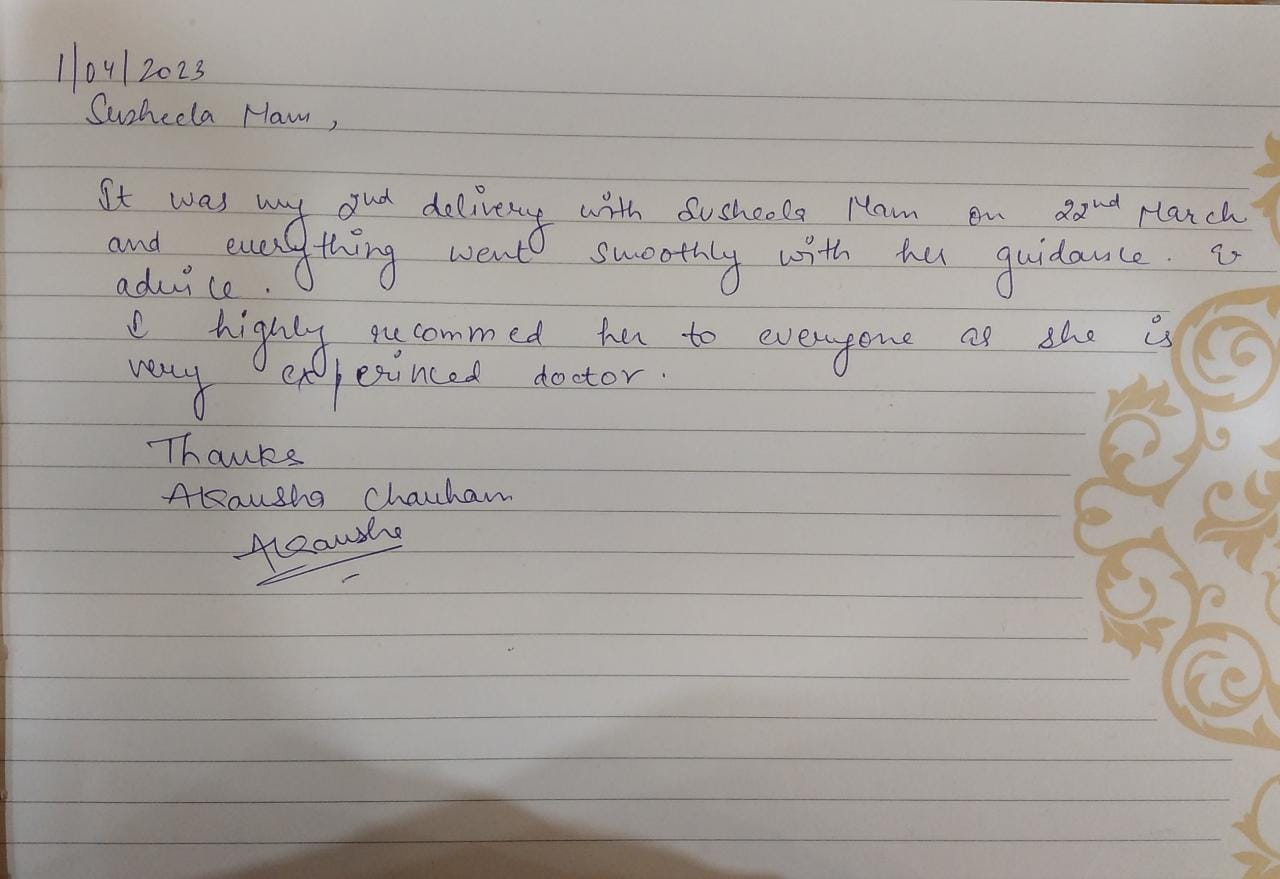 1/04/2023
Susheela Mam,
It was my 2nd delivery with Susheela Mam on 22nd March
and everything went smoothly with her guidance. &
advice.
I highly recommed her to everyone as she is
very experinced doctor.
Thanks
Akansha Chauhan
Akansha